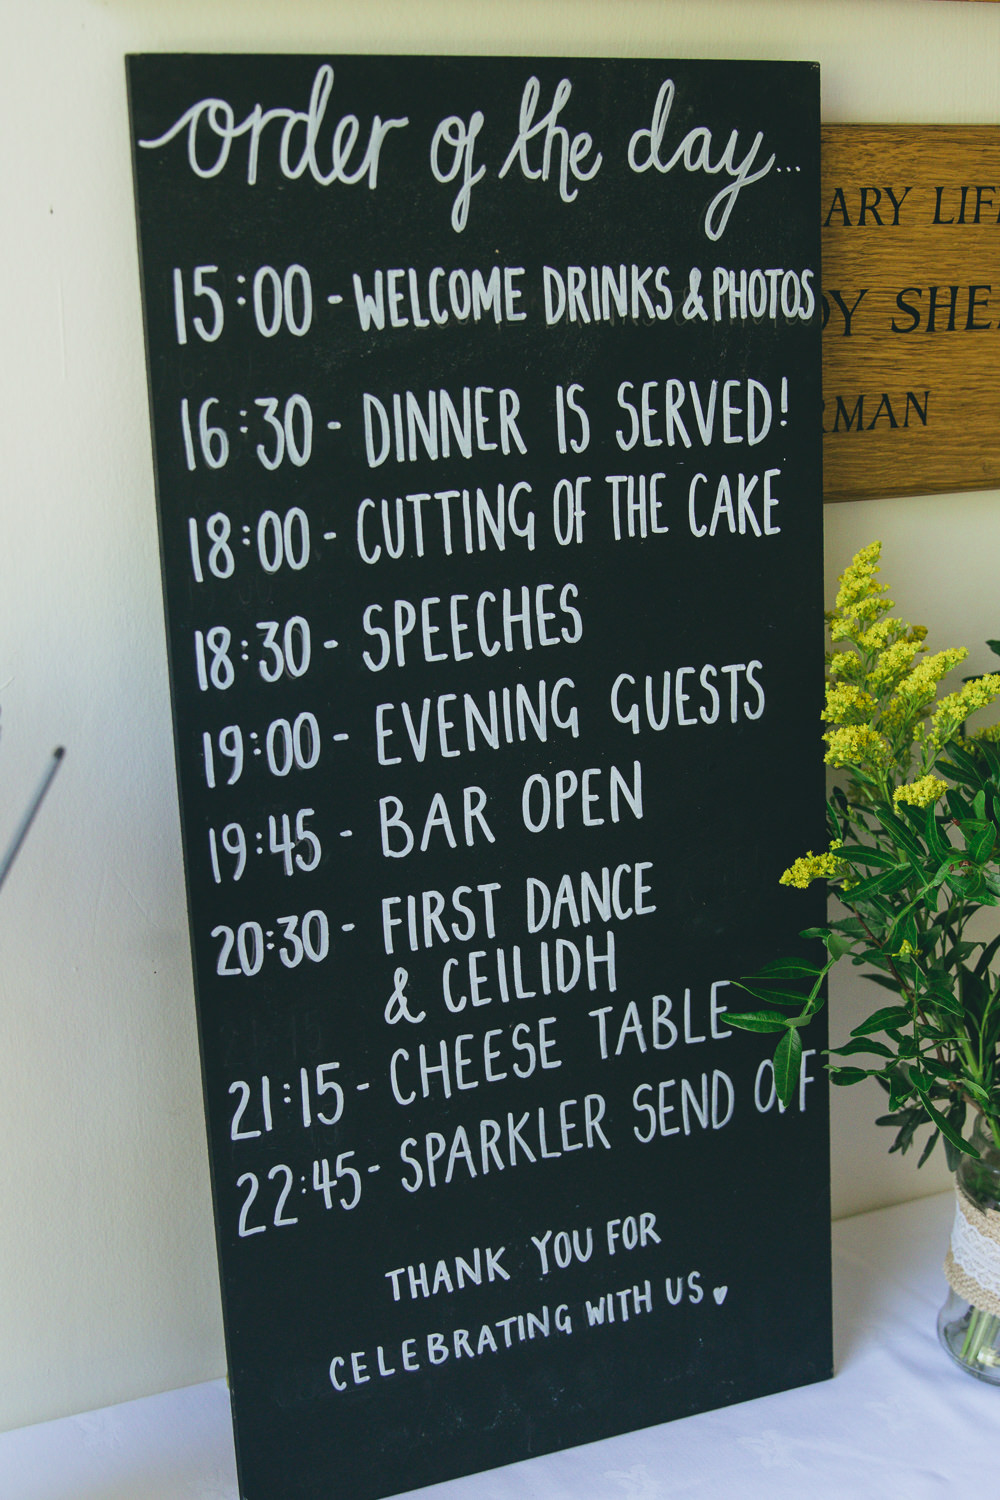 order of the day...
15:00 - WELCOME DRINKS & PHOTOS
16:30 - DINNER IS SERVED!
18:00 - CUTTING OF THE CAKE
18:30 - SPEECHES
19:00 - EVENING GUESTS
19:45 - BAR OPEN
20:30 - FIRST DANCE
& CEILIDH
21:15 - CHEESE TABLE
22:45 - SPARKLER SEND OFF
THANK YOU FOR
CELEBRATING WITH US ♥
LIFE